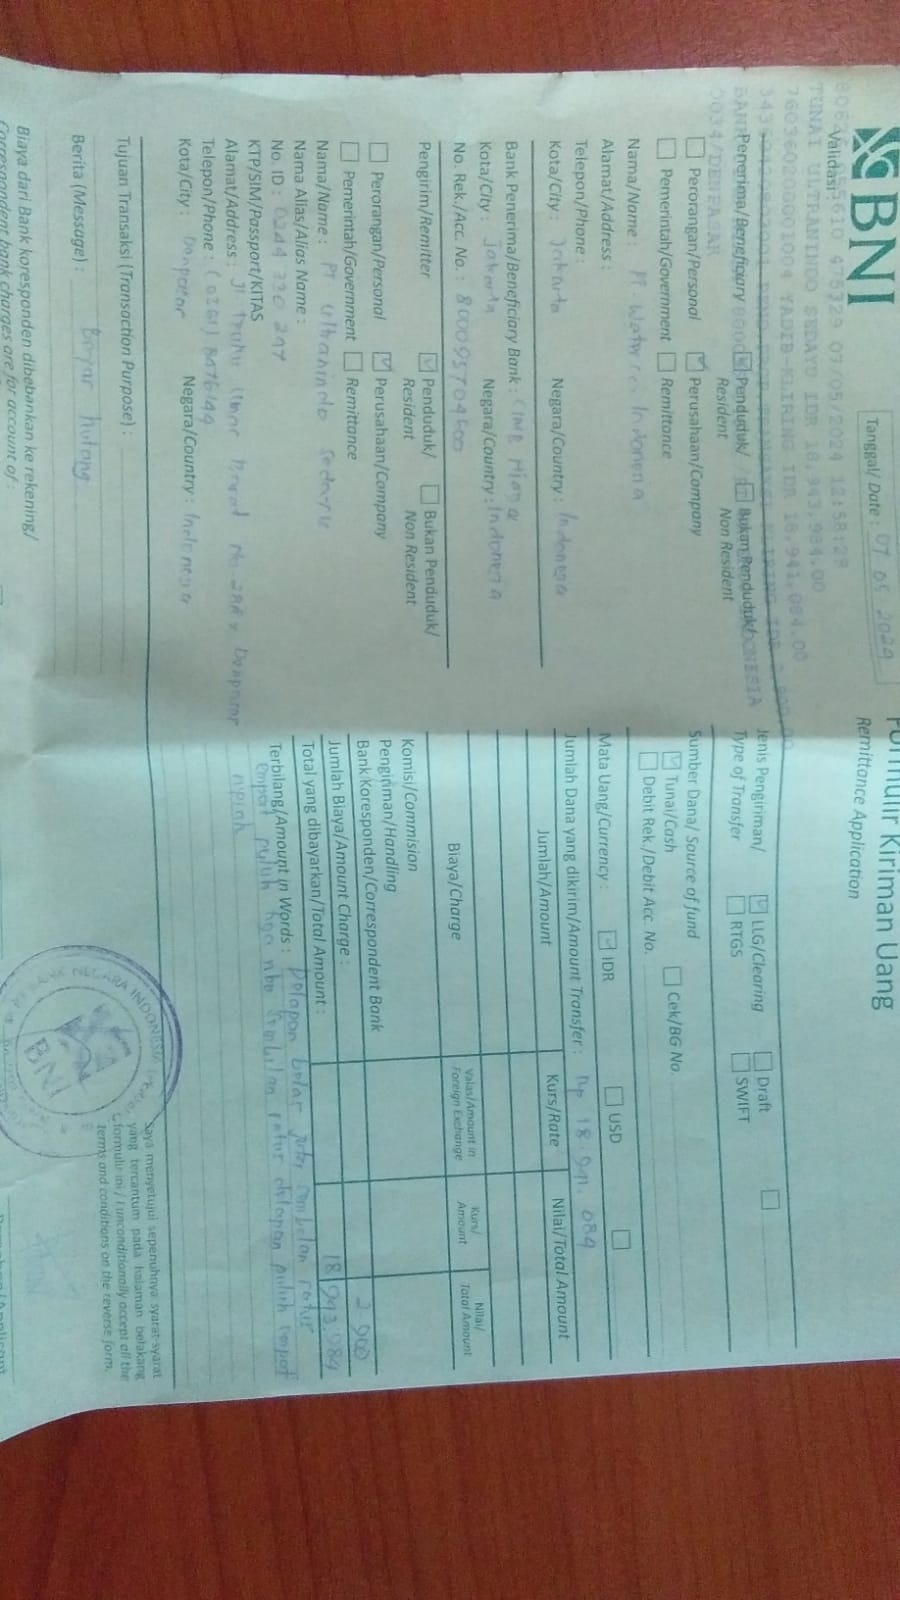 BNI
Formulir Kiriman Uang
Remittance Application
Tanggal/ Date : 07 05 2024
Validasi
07/05/2024 12:58:29
TUNAI ULTRANINDO SEDAYU IDR 18,943,984.00
YADIB-KLIRING IDR 18,941,084.00
0034/DENPASAR
Penerima/Beneficiary
Penduduk/
Resident
Bukan Penduduk/
Non Resident
Perorangan/Personal
Perusahaan/Company
Pemerintah/Government
Remittance
Nama/Name PT Indonesia
Alamat/Address :
Telepon/Phone :
Kota/City : Jakarta Negara/Country : Indonesia
Bank Penerima/Beneficiary Bank : CIMB Niaga
Kota/City : Jakarta Negara/Country : Indonesia
No. Rek./Acc. No. : 800095704500
Pengirim/Remitter
Penduduk/
Resident
Bukan Penduduk/
Non Resident
Perorangan/Personal
Perusahaan/Company
Pemerintah/Government
Remittance
Nama/Name : PT Ultranindo Sedayu
Nama Alias/Alias Name :
No. ID : 0244 330 247
KTP/SIM/Passport/KITAS
Alamat/Address : Jl Denpasar
Telepon/Phone : (0361)
Kota/City : Denpasar Negara/Country : Indonesia
Tujuan Transaksi (Transaction Purpose) :
Berita (Message) : Bayar hutang
Biaya dari Bank koresponden dibebankan ke rekening/
Correspondent bank charges are for account of :
Jenis Pengiriman/
Type of Transfer
LLG/Clearing
Draft
RTGS
SWIFT
Sumber Dana/ Source of fund
Tunai/Cash
Cek/BG No.
Debit Rek./Debit Acc. No.
Mata Uang/Currency :
IDR
USD
Jumlah Dana yang dikirim/Amount Transfer : Rp 18.941.084
Jumlah/Amount
Kurs/Rate
Nilai/Total Amount
Biaya/Charge
Valas/Amount in
Foreign Exchange
Kurs/
Amount
Nilai/
Total Amount
Komisi/Commision
Pengiriman/Handling 2 900
Bank Koresponden/Correspondent Bank
Jumlah Biaya/Amount Charge :
Total yang dibayarkan/Total Amount : 18 943.984
Terbilang/Amount in Words : Delapan belas juta sembilan ratus
empat puluh tiga ribu sembilan ratus delapan puluh empat
rupiah
Saya menyetujui sepenuhnya syarat-syarat
yang tercantum pada halaman belakang
formulir ini / I unconditionally accept all the
terms and conditions on the reverse form.
BANK NEGARA INDONESIA
BNI